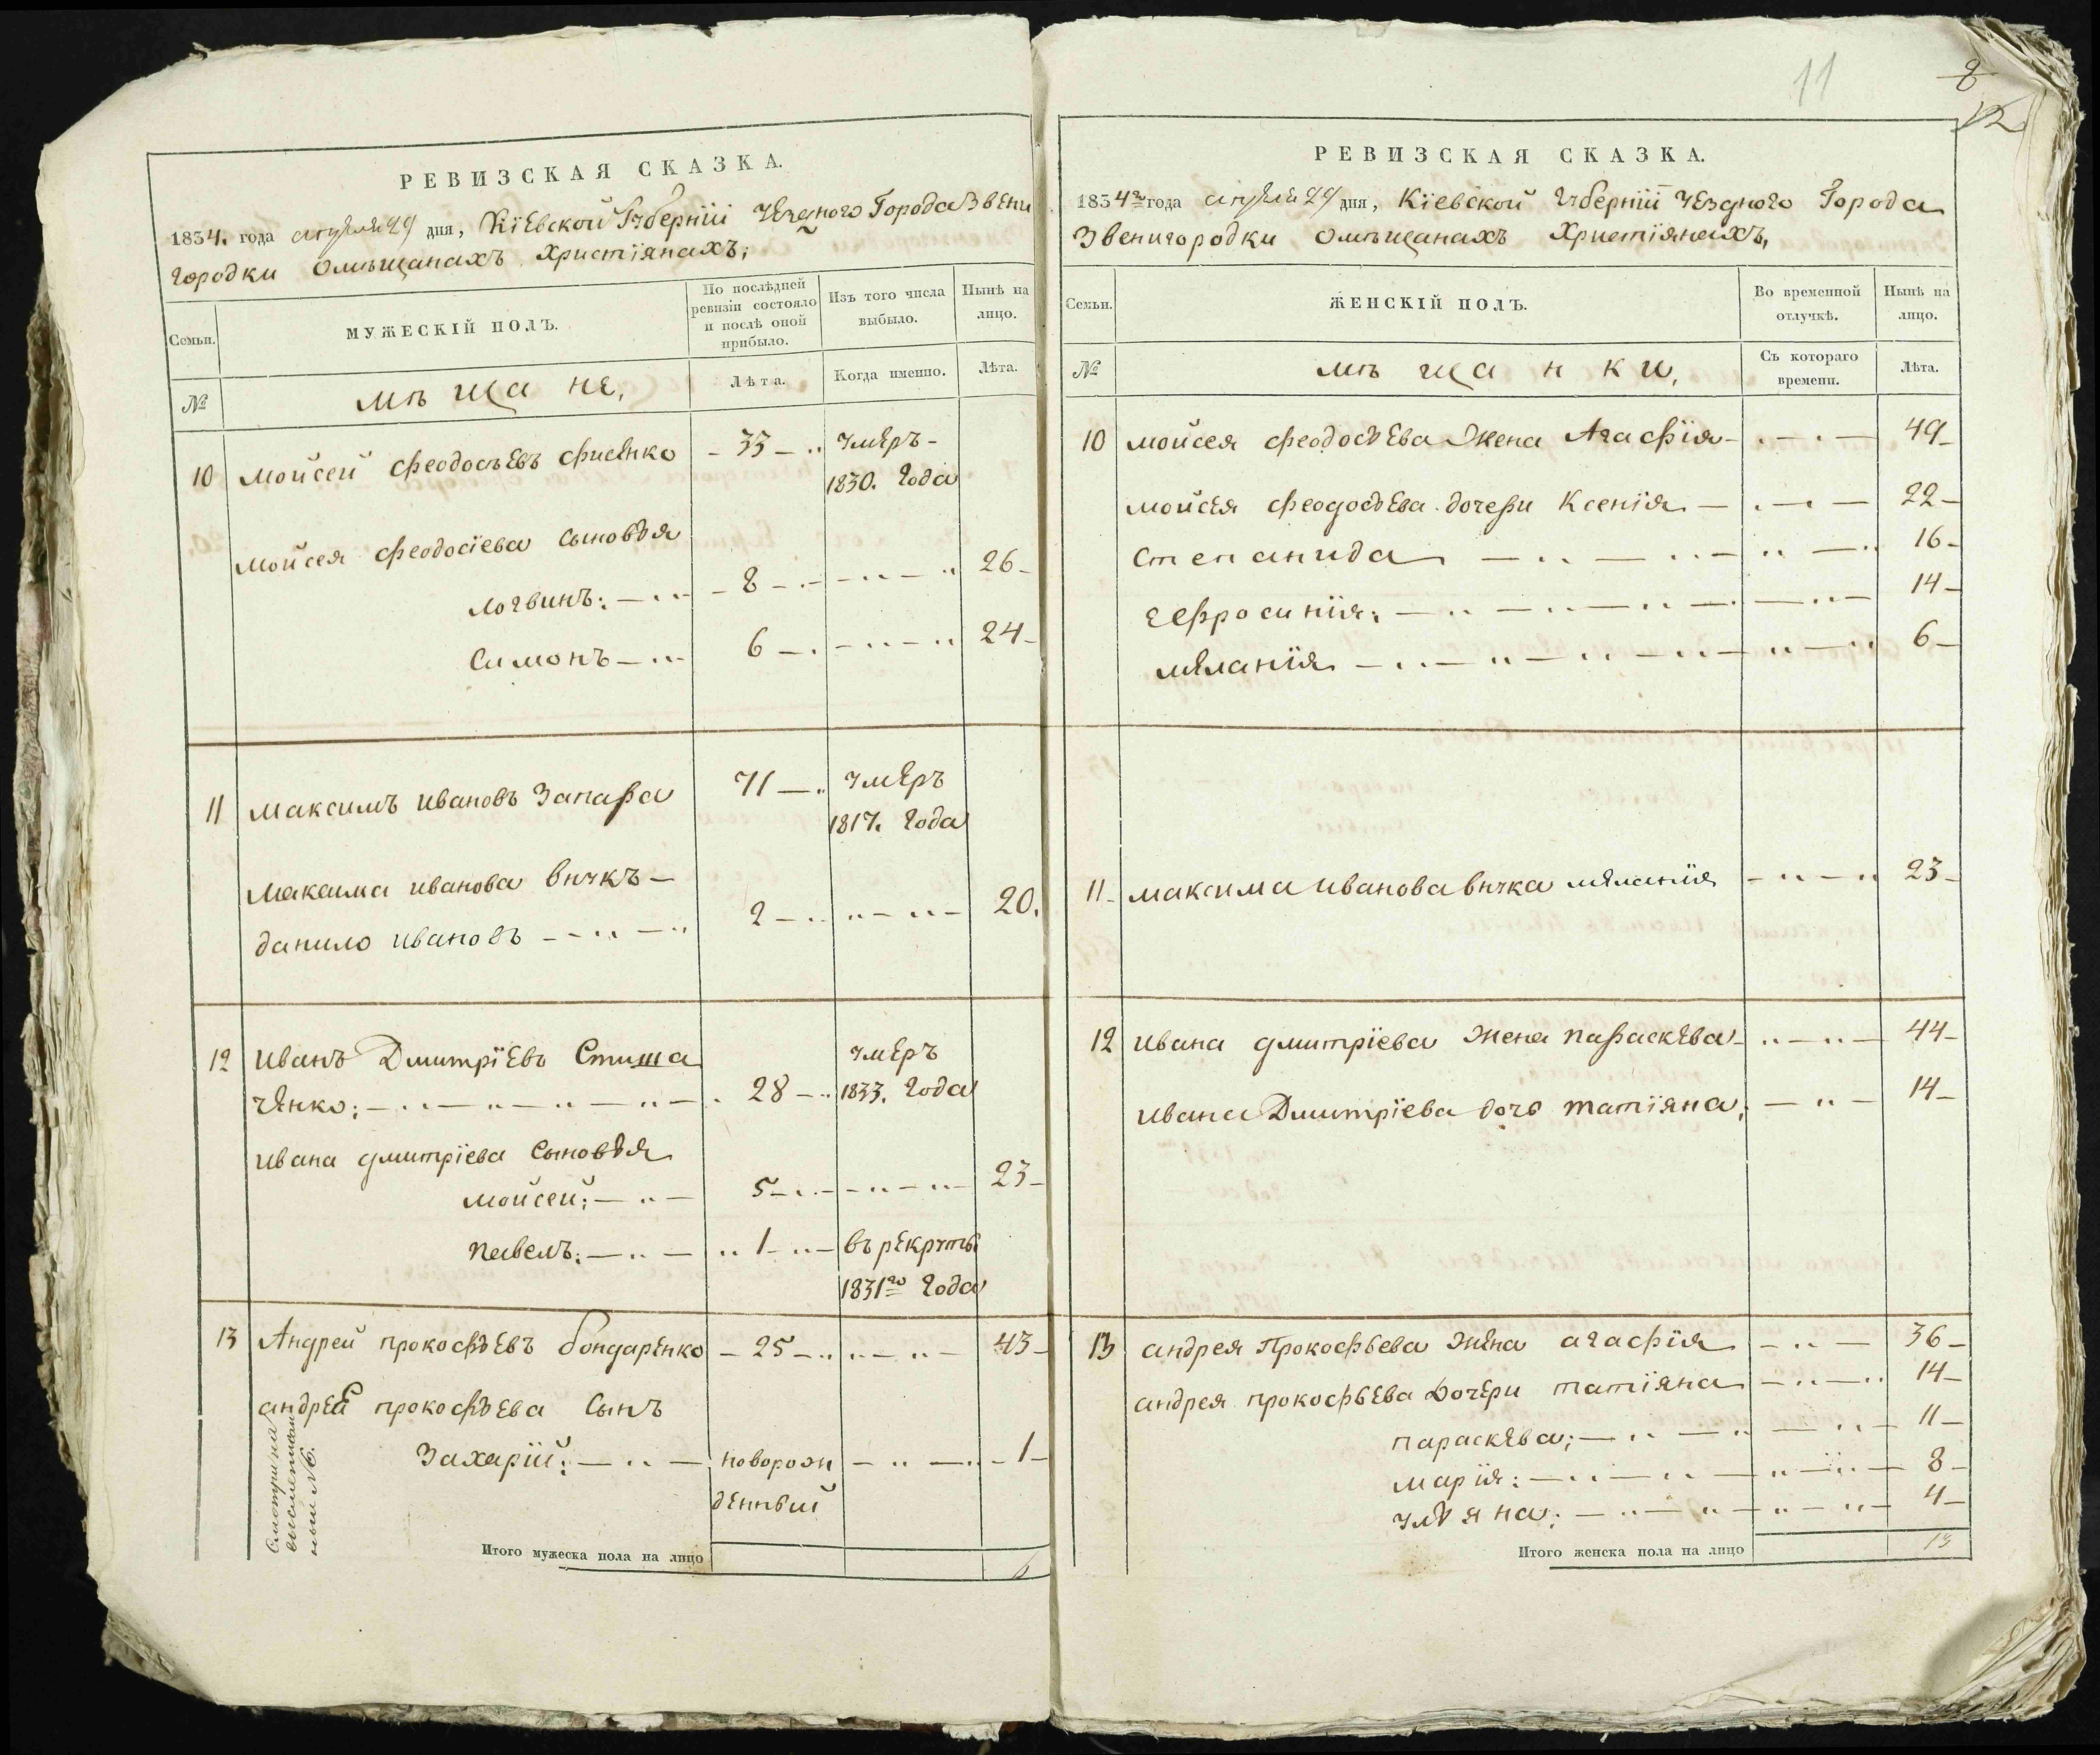 РЕВИЗСКАЯ СКАЗКА.
1834. года апреля 29 дня, Кіевской Губерніи уезднаго Города Звени
городки О мѣщанахъ Христіянахъ;
Семьи.
МУЖЕСКІЙ ПОЛЪ.
По послѣдней ревизіи состояло и послѣ оной прибыло.
Изъ того числа выбыло.
Нынѣ на лицо.
№
мѣщане,
Лѣта.
Когда именно.
Лѣта.
10 Мойсей Феодосъевъ - 33 - умеръ -
1830. Года
Мойсея Феодосіева сыновья
Логвинъ: - 8 - 26 -
Симонъ - 6 - 24 -
11 Максимъ Ивановъ Запара 71 - умеръ
1817. Года
Максима Иванова внукъ -
данило Ивановъ - 2 - 20.
12 Иванъ Дмитріевъ Стиша умеръ
ченко: - 28 - 1833. Года
Ивана дмитріева сыновья
Мойсей: - 5 - 23 -
Павелъ: - 1 - въ рекруты
1831го Года
13 Андрей прокофъевъ бондаренко - 25 - 43 -
андрея прокофъева сынъ
Захарій: - новорож - 1 -
денный
Смотри на
№ 6.
Итого мужеска пола на лицо 6
11
8
12
РЕВИЗСКАЯ СКАЗКА.
1834го года апреля 29 дня, Кіевской Губерніи уезднаго Города
Звенигородки О мѣщанахъ Христіянахъ,
Семьи.
ЖЕНСКІЙ ПОЛЪ.
Во временной отлучкѣ.
Нынѣ на лицо.
№
мѣщанки,
Съ котораго времени.
Лѣта.
10 Мойсея Феодосъева Жена Агафія - 49 -
Мойсея Феодосъева дочери Ксенія - 22 -
Степанида - 16 -
Ефросинія: - 14 -
Меланія - 6 -
11 - Максима Иванова внука Меланія - 23 -
12 Ивана дмитріева Жена Параскева - 44 -
Ивана Дмитріева дочь татіяна, - 14 -
13 андрея Прокофьева Жена агафія - 36 -
андрея прокофьева Дочери татіяна - 14 -
параскева; - 11 -
марія: - 8 -
уляна: - 4 -
Итого женска пола на лицо 13